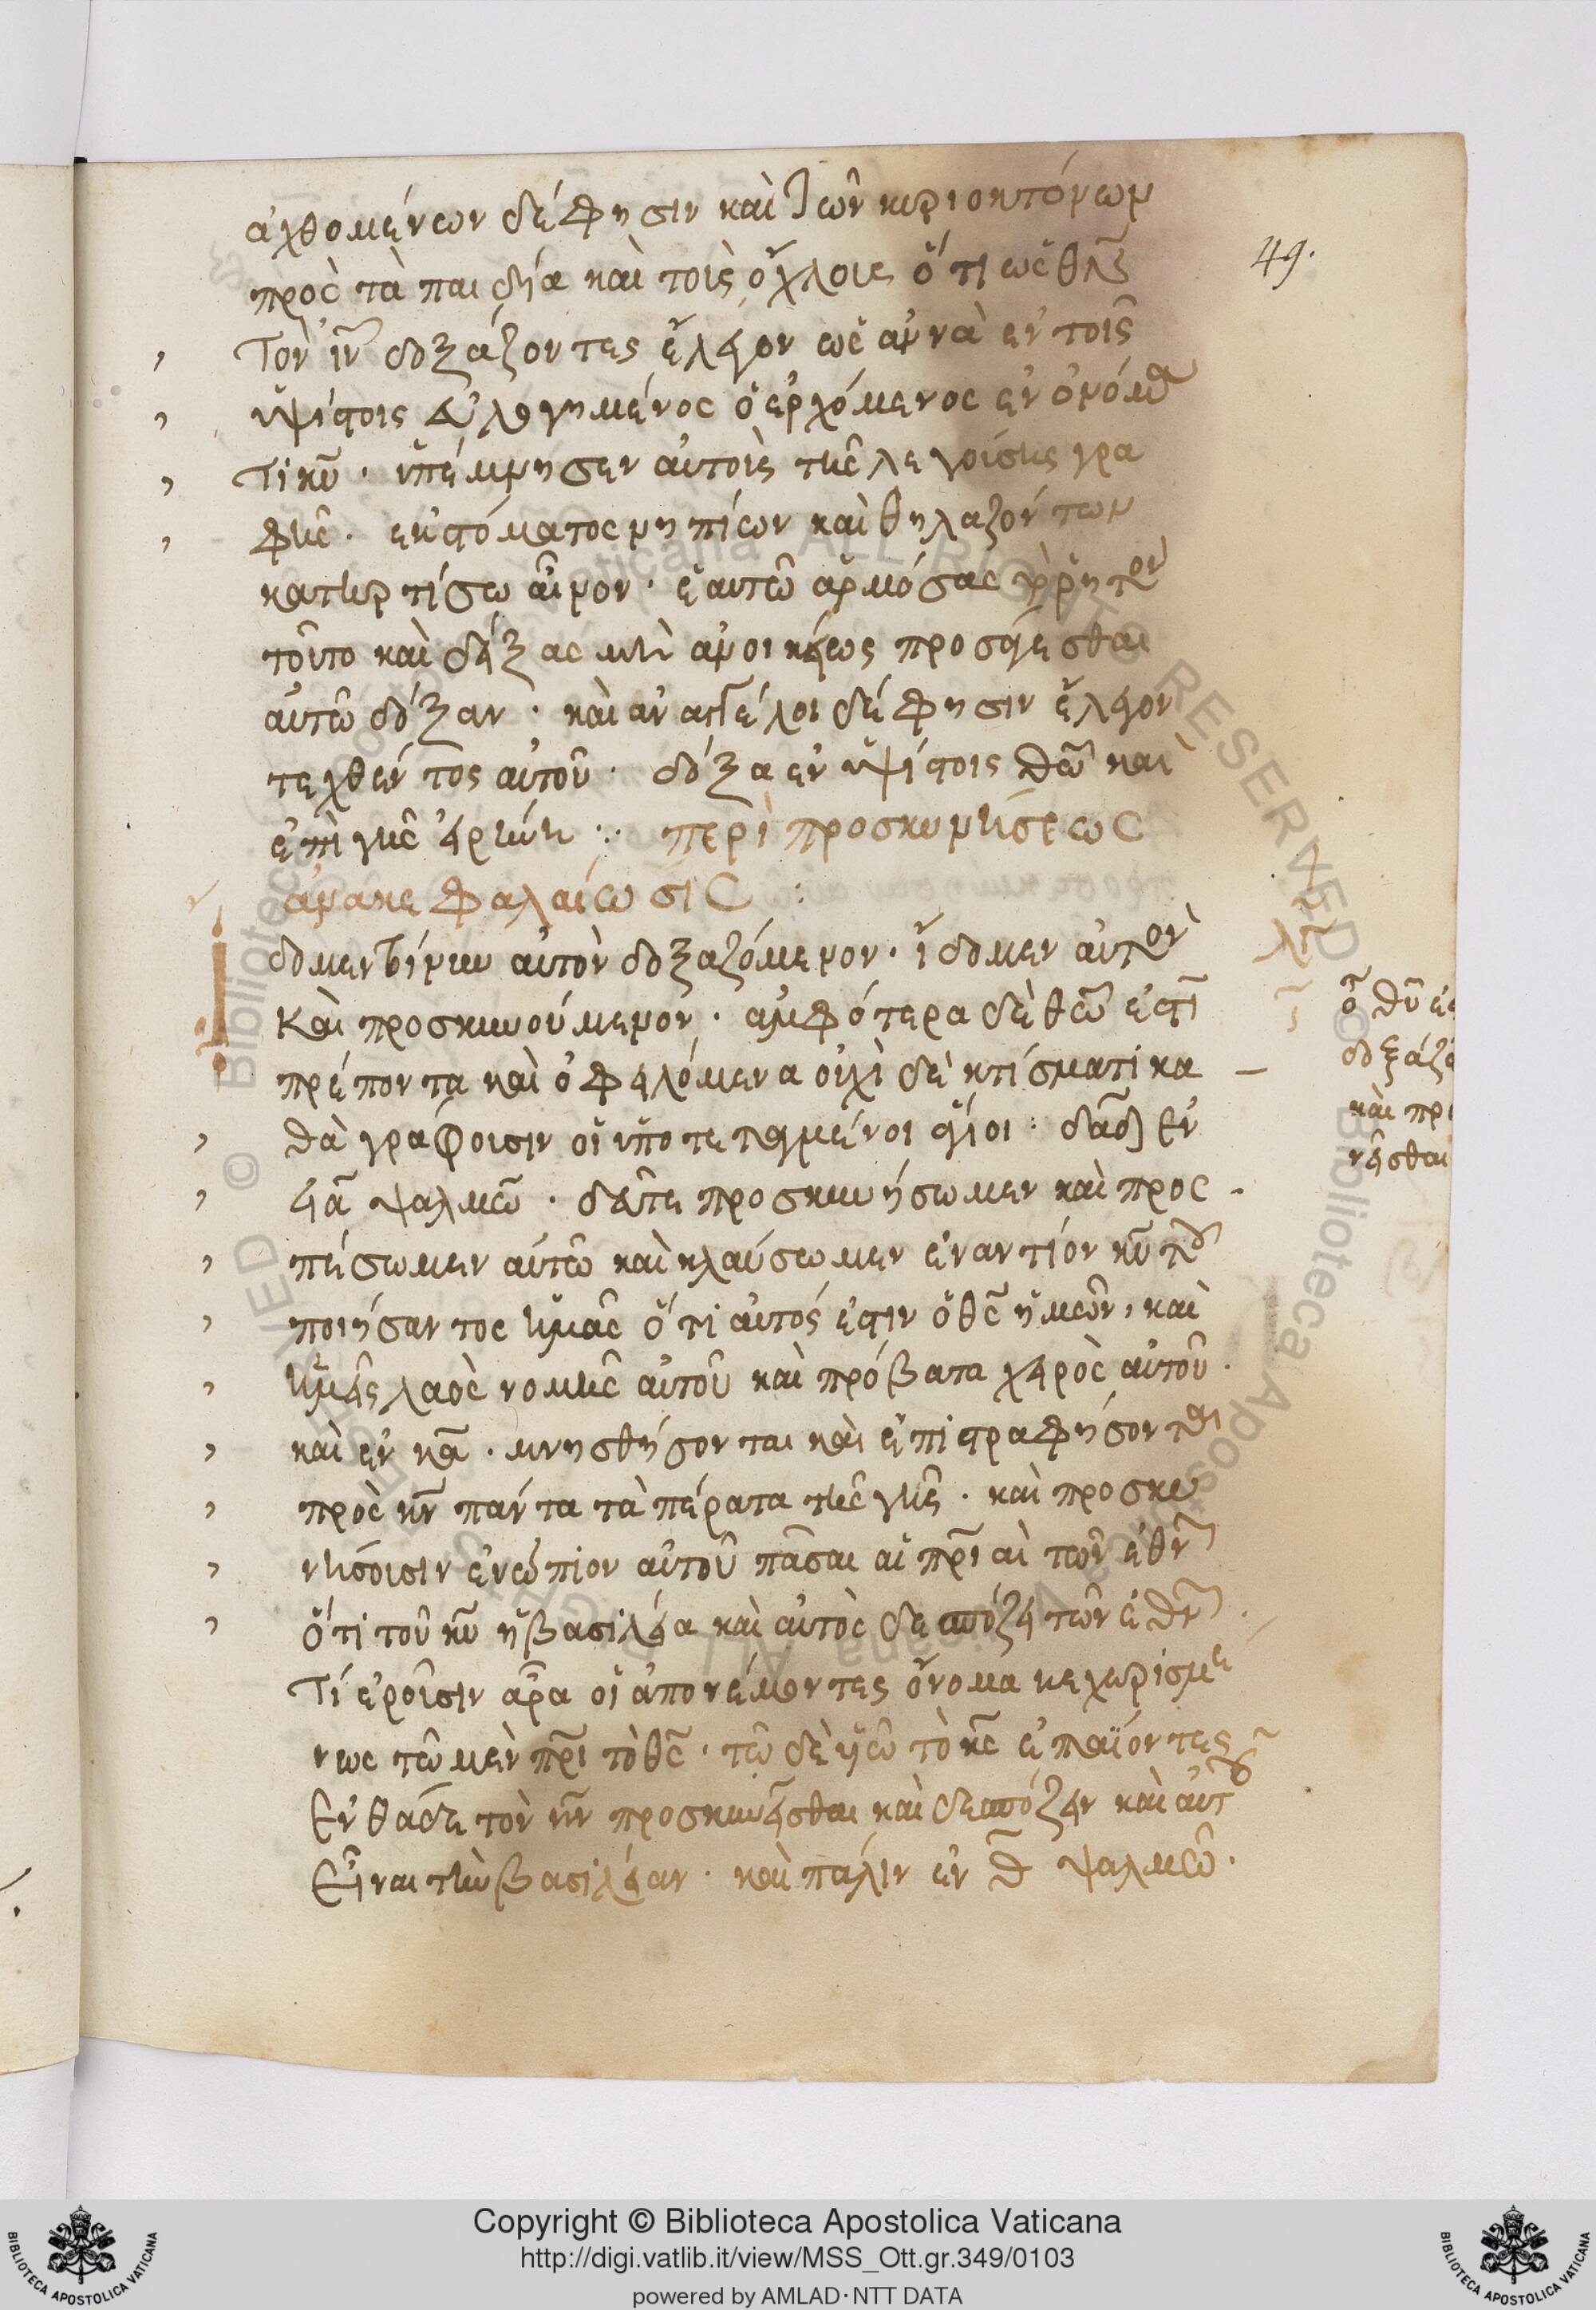 ἀχθομένων δέ φησιν καὶ τῶν κυριοκτόνων
49.
πρὸς τὰ παιδία καὶ τοὺς ὄχλους ὅτι ὡς θν
τὸν ιν δοξάζοντες ἔλεγον ὡσαννὰ ἐν τοῖς
ὑψίστοις εὐλογημένος ὁ ἐρχόμενος ἐν ὀνόμα
τι κυ · ὑπέμνησεν αὐτοὺς τῆς λεγούσης γρα
φῆς · ἐκ στόματος νηπίων καὶ θηλαζόντων
κατηρτίσω αἶνον · ἑαυτῶ ἁρμόσας τὸ ῥητὸν
τοῦτο καὶ δείξας μὴ ἀνοικείως προσάγεσθαι
αὐτῶ δόξαν · καὶ ἂν ἄγγελοι δέ φησιν ἔλεγον
τεχθέντος αὐτοῦ · δόξα ἐν ὑψίστοις θεῶ καὶ
ἐπὶ γῆς εἰρήνη · περὶ προσκυνήσεως
ἀνακεφαλαίωσις :
ἴδομεν τοίνυν αὐτὸν δοξαζόμενον · ἴδομεν αὐτὸν
καὶ προσκυνούμενον · ἀμφότερα δὲ θεῶ ἐστὶ
πρέποντα καὶ ὀφειλόμενα οὐχὶ δὲ κτίσματι κα
θὰ γράφουσιν οἱ ὑποτεταγμένοι ἅγιοι : δαδ ἐν
ψαλμῶ · δεῦτε προσκυνήσωμεν καὶ προς
πέσωμεν αὐτῶ καὶ κλαύσωμεν ἐναντίον κυ τοῦ
ποιήσαντος ἡμᾶς ὅτι αὐτός ἐστιν ὁ θς ἡμῶν, καὶ
ἡμεῖς λαὸς νομῆς αὐτοῦ καὶ πρόβατα χειρὸς αὐτοῦ ·
καὶ ἐν κα · μνησθήσονται καὶ ἐπιστραφήσονται
πρὸς κν πάντα τὰ πέρατα τῆς γῆς · καὶ προσκυ
νήσουσιν ἐνώπιον αὐτοῦ πᾶσαι αἱ πριαὶ τῶν ἐθν
ὅτι τοῦ κυ ἡ βασιλεία καὶ αὐτὸς δεσπόζει τῶν ἐθν ·
Τί ἐροῦσιν ἄρα οἱ ἀπονέμοντες ὄνομα κεχωρισμέ
νως τῶ μὲν πρι τὸ θς · τῶ δὲ υἱῶ τὸ κς ἐπαΐοντες
ἐνθάδε τὸν κν προσκυνεῖσθαι καὶ δεσπόζειν καὶ αὐτοῦ
εἶναι τὴν βασιλείαν · καὶ πάλιν ἐν ψαλμῶ ·
δοξάζε
καὶ πρ
νεῖσθαι
Copyright © Biblioteca Apostolica Vaticana
http://digi.vatlib.it/view/MSS_Ott.gr.349/0103
powered by AMLAD·NTT DATA